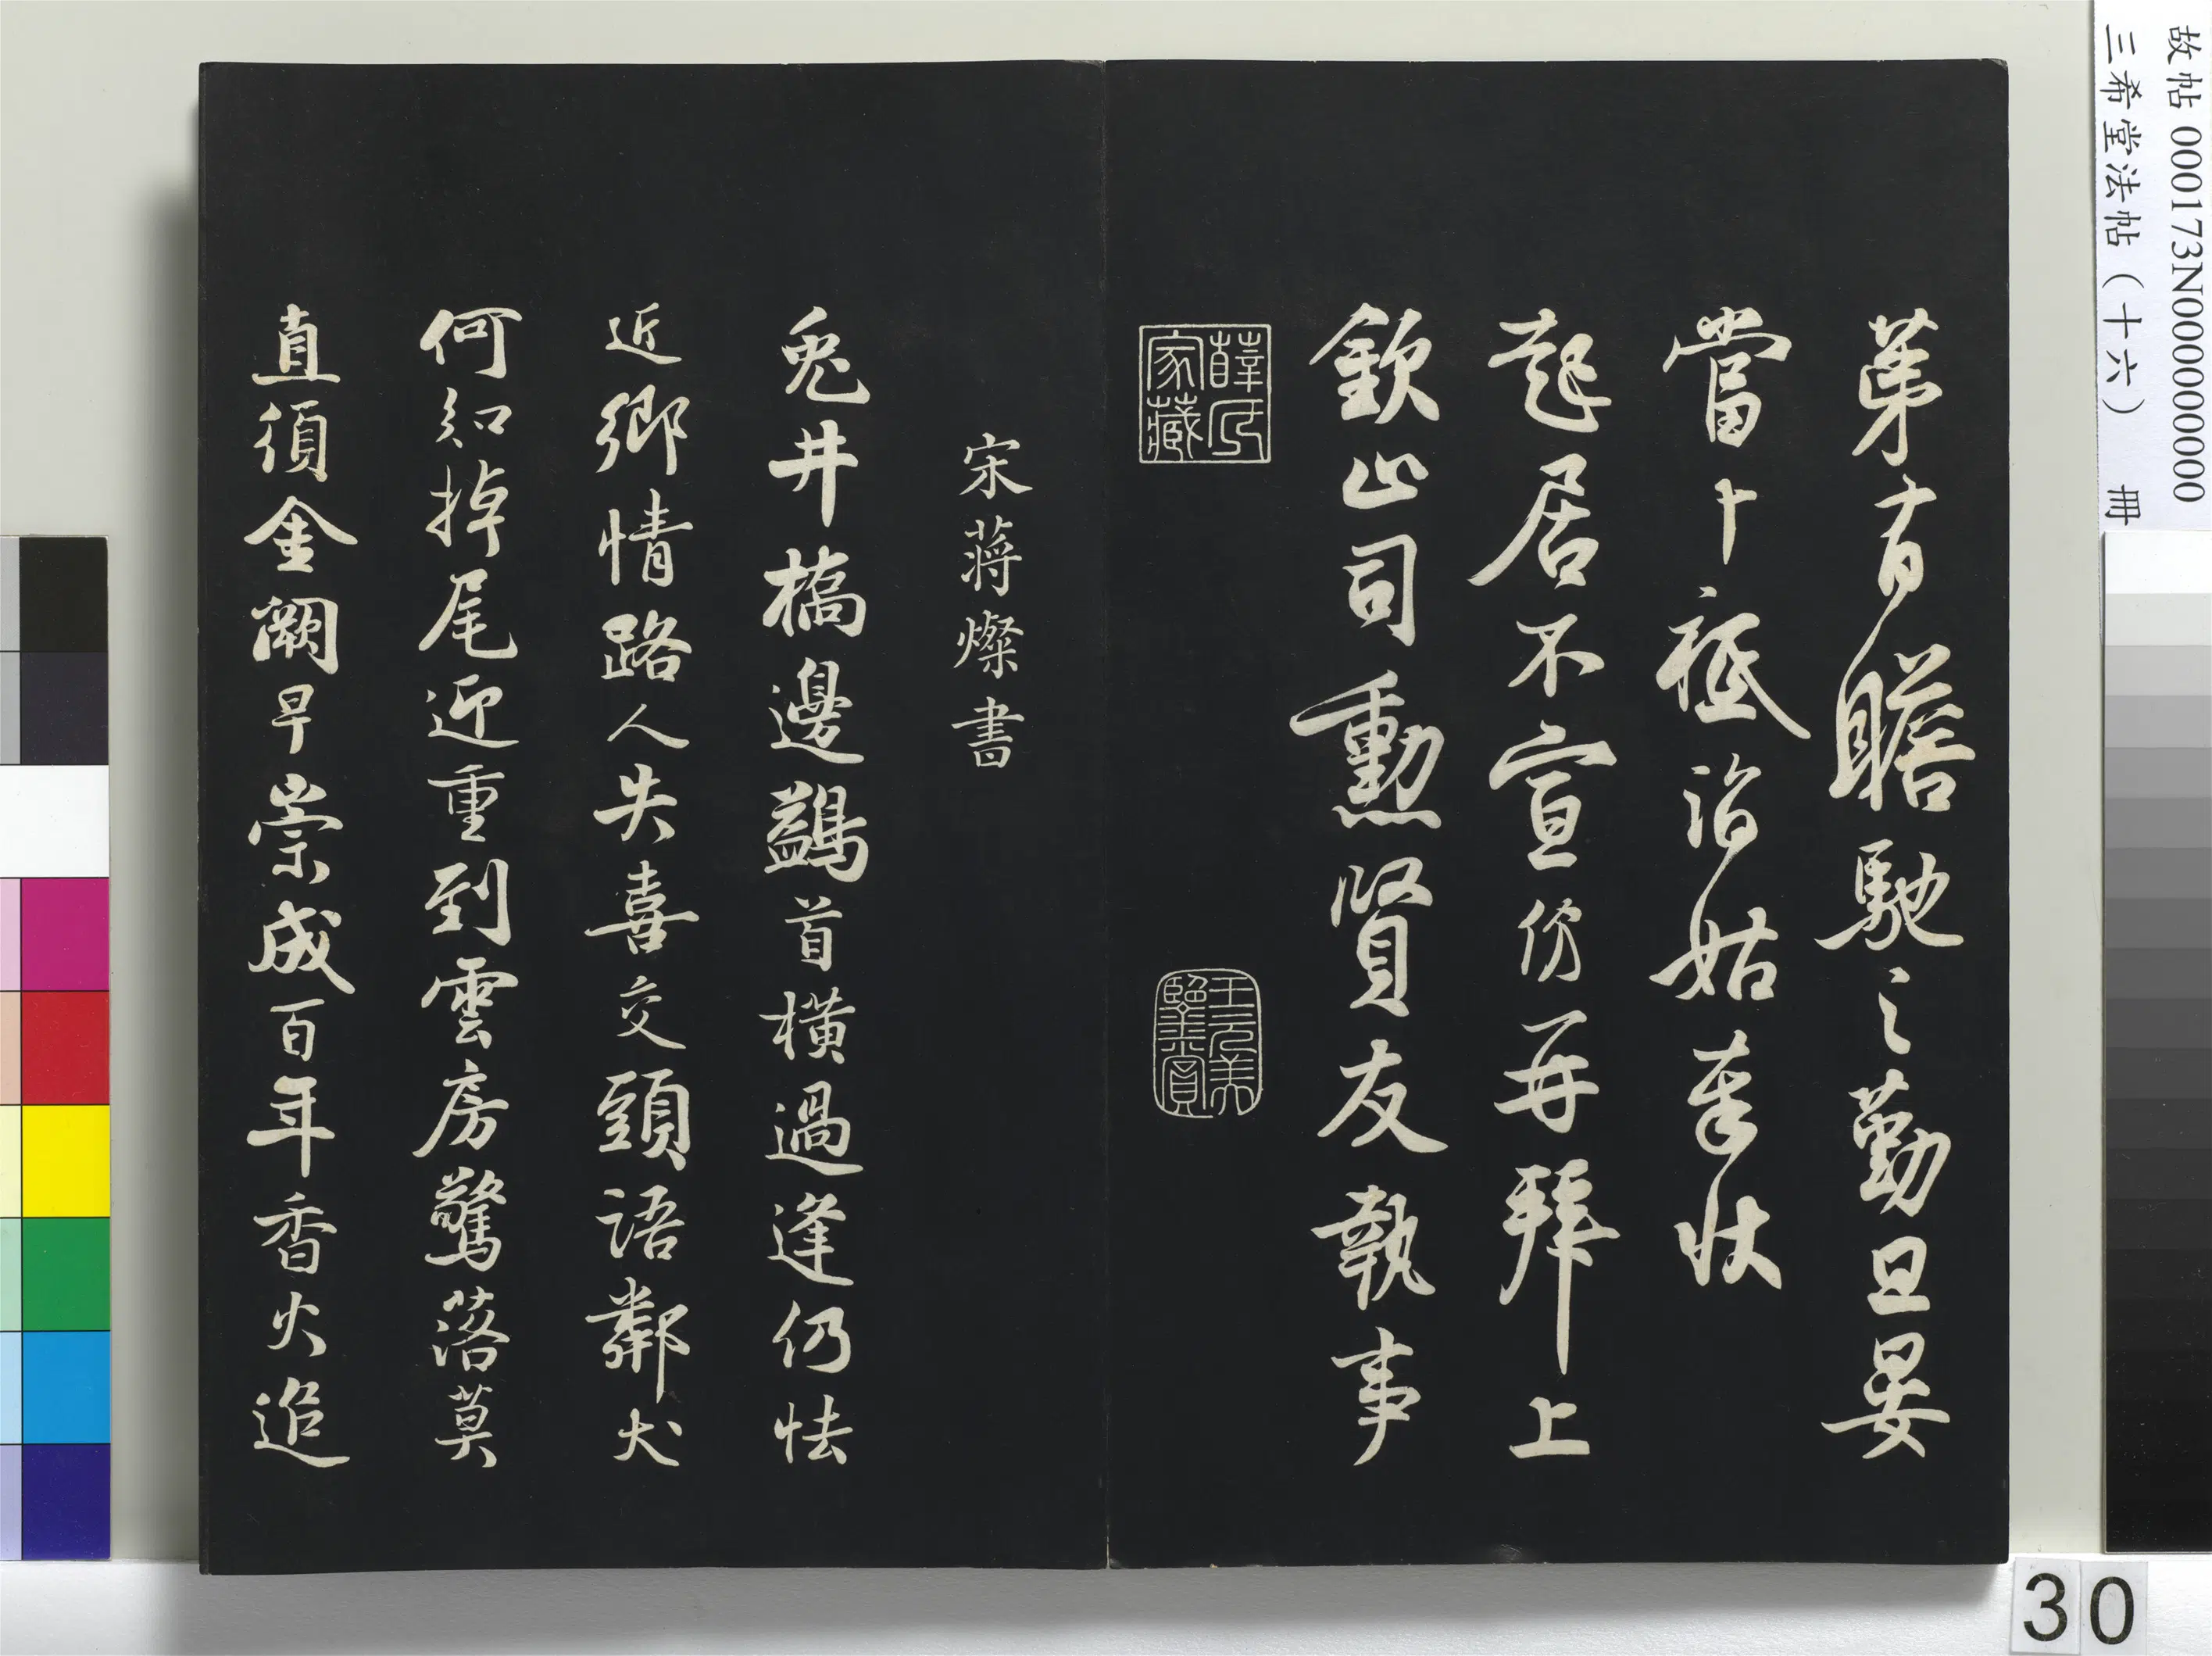 故帖 000173N000000000
三希堂法帖（十六） 冊
第有瞻馳之勤旦晏
當卜祗詣姑奉狀
起居不宣份再拜上
欽止司勳賢友執事
薛氏家藏
王元美鑒賞
宋蔣燦書
兔井橋邊鷁首橫過逢仍怯
近鄉情路人失喜交頭語鄰犬
何知掉尾迎重到雲房驚落莫
直須金闕早崇成百年香火追
30